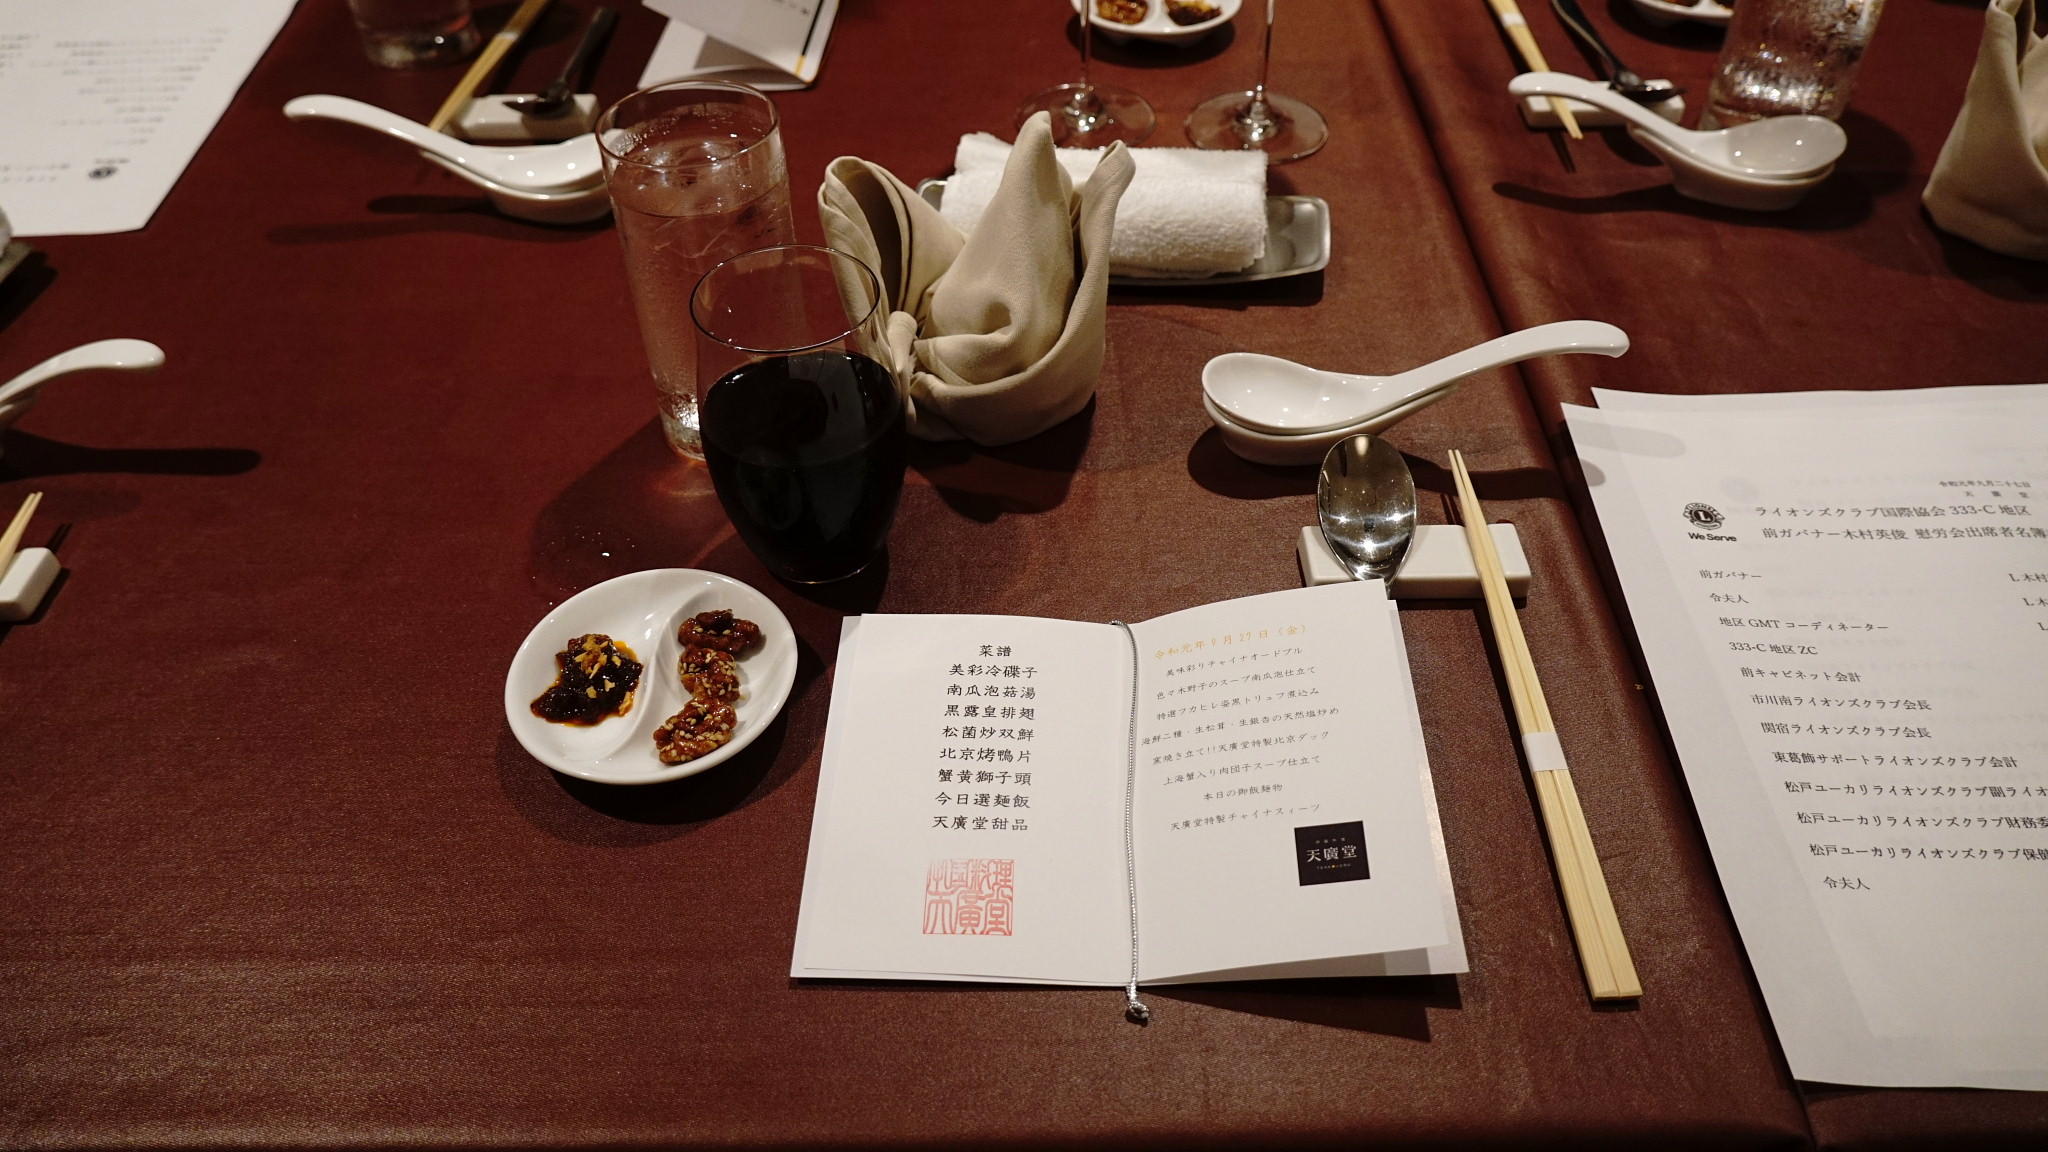 菜譜
美彩冷碟子
南瓜泡菇湯
黑露皇排翅
松菌炒双鮮
北京烤鴨片
蟹黄獅子頭
今日選麺飯
天廣堂甜品
令和元年9月27日（金）
美味彩りチャイナオードブル
色々木野子のスープ南瓜泡仕立て
特選フカヒレ姿黒トリュフ煮込み
海鮮二種・生松茸・生銀杏の天然塩炒め
窯焼き立て!!天廣堂特製北京ダック
上海蟹入り肉団子スープ仕立て
本日の御飯麺物
天廣堂特製チャイナスィーツ
天廣堂
令和元年九月二十七日
天廣堂
We Serve
ライオンズクラブ国際協会 333-C 地区
前ガバナー木村英俊 慰労会出席者名簿
前ガバナー L 木村
令夫人 L
地区 GMT コーディネーター L
333-C 地区 ZC
前キャビネット会計
市川南ライオンズクラブ会長
関宿ライオンズクラブ会長
東葛飾サポートライオンズクラブ会計
松戸ユーカリライオンズクラブ副ライオ
松戸ユーカリライオンズクラブ財務委
松戸ユーカリライオンズクラブ保健
令夫人